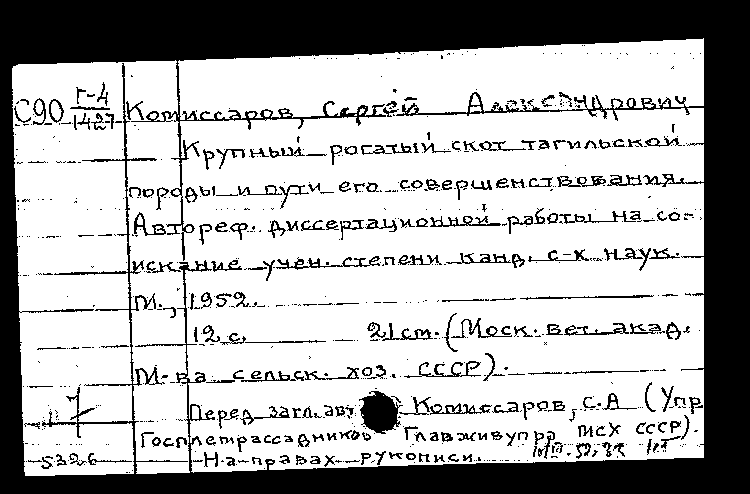 С90 Г-4/1427 Комиссаров, Сергей Александрович
Крупный рогатый скот тагильской
породы и пути его совершенствования.
Автореф. диссертационной работы на со-
искание учен. степени канд. с-х наук.
М., 1952.
12 с. 21 см. (Моск. вет. акад.
М-ва сельск. хоз. СССР).
Перед загл. авт Комиссаров, С.А (Упр
Госплемрассадников Главживупра МСХ СССР).
5326 На правах рукописи.